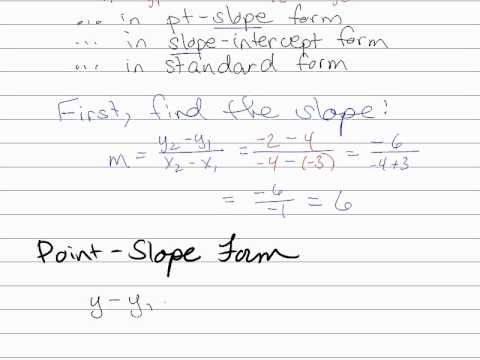 ... in pt-slope form
... in slope-intercept form
... in standard form
First, find the slope:
m = y₂ - y₁ / x₂ - x₁ = -2 - 4 / -4 - (-3) = -6 / -4+3
= -6 / -1 = 6
Point-Slope Form
y - y₁